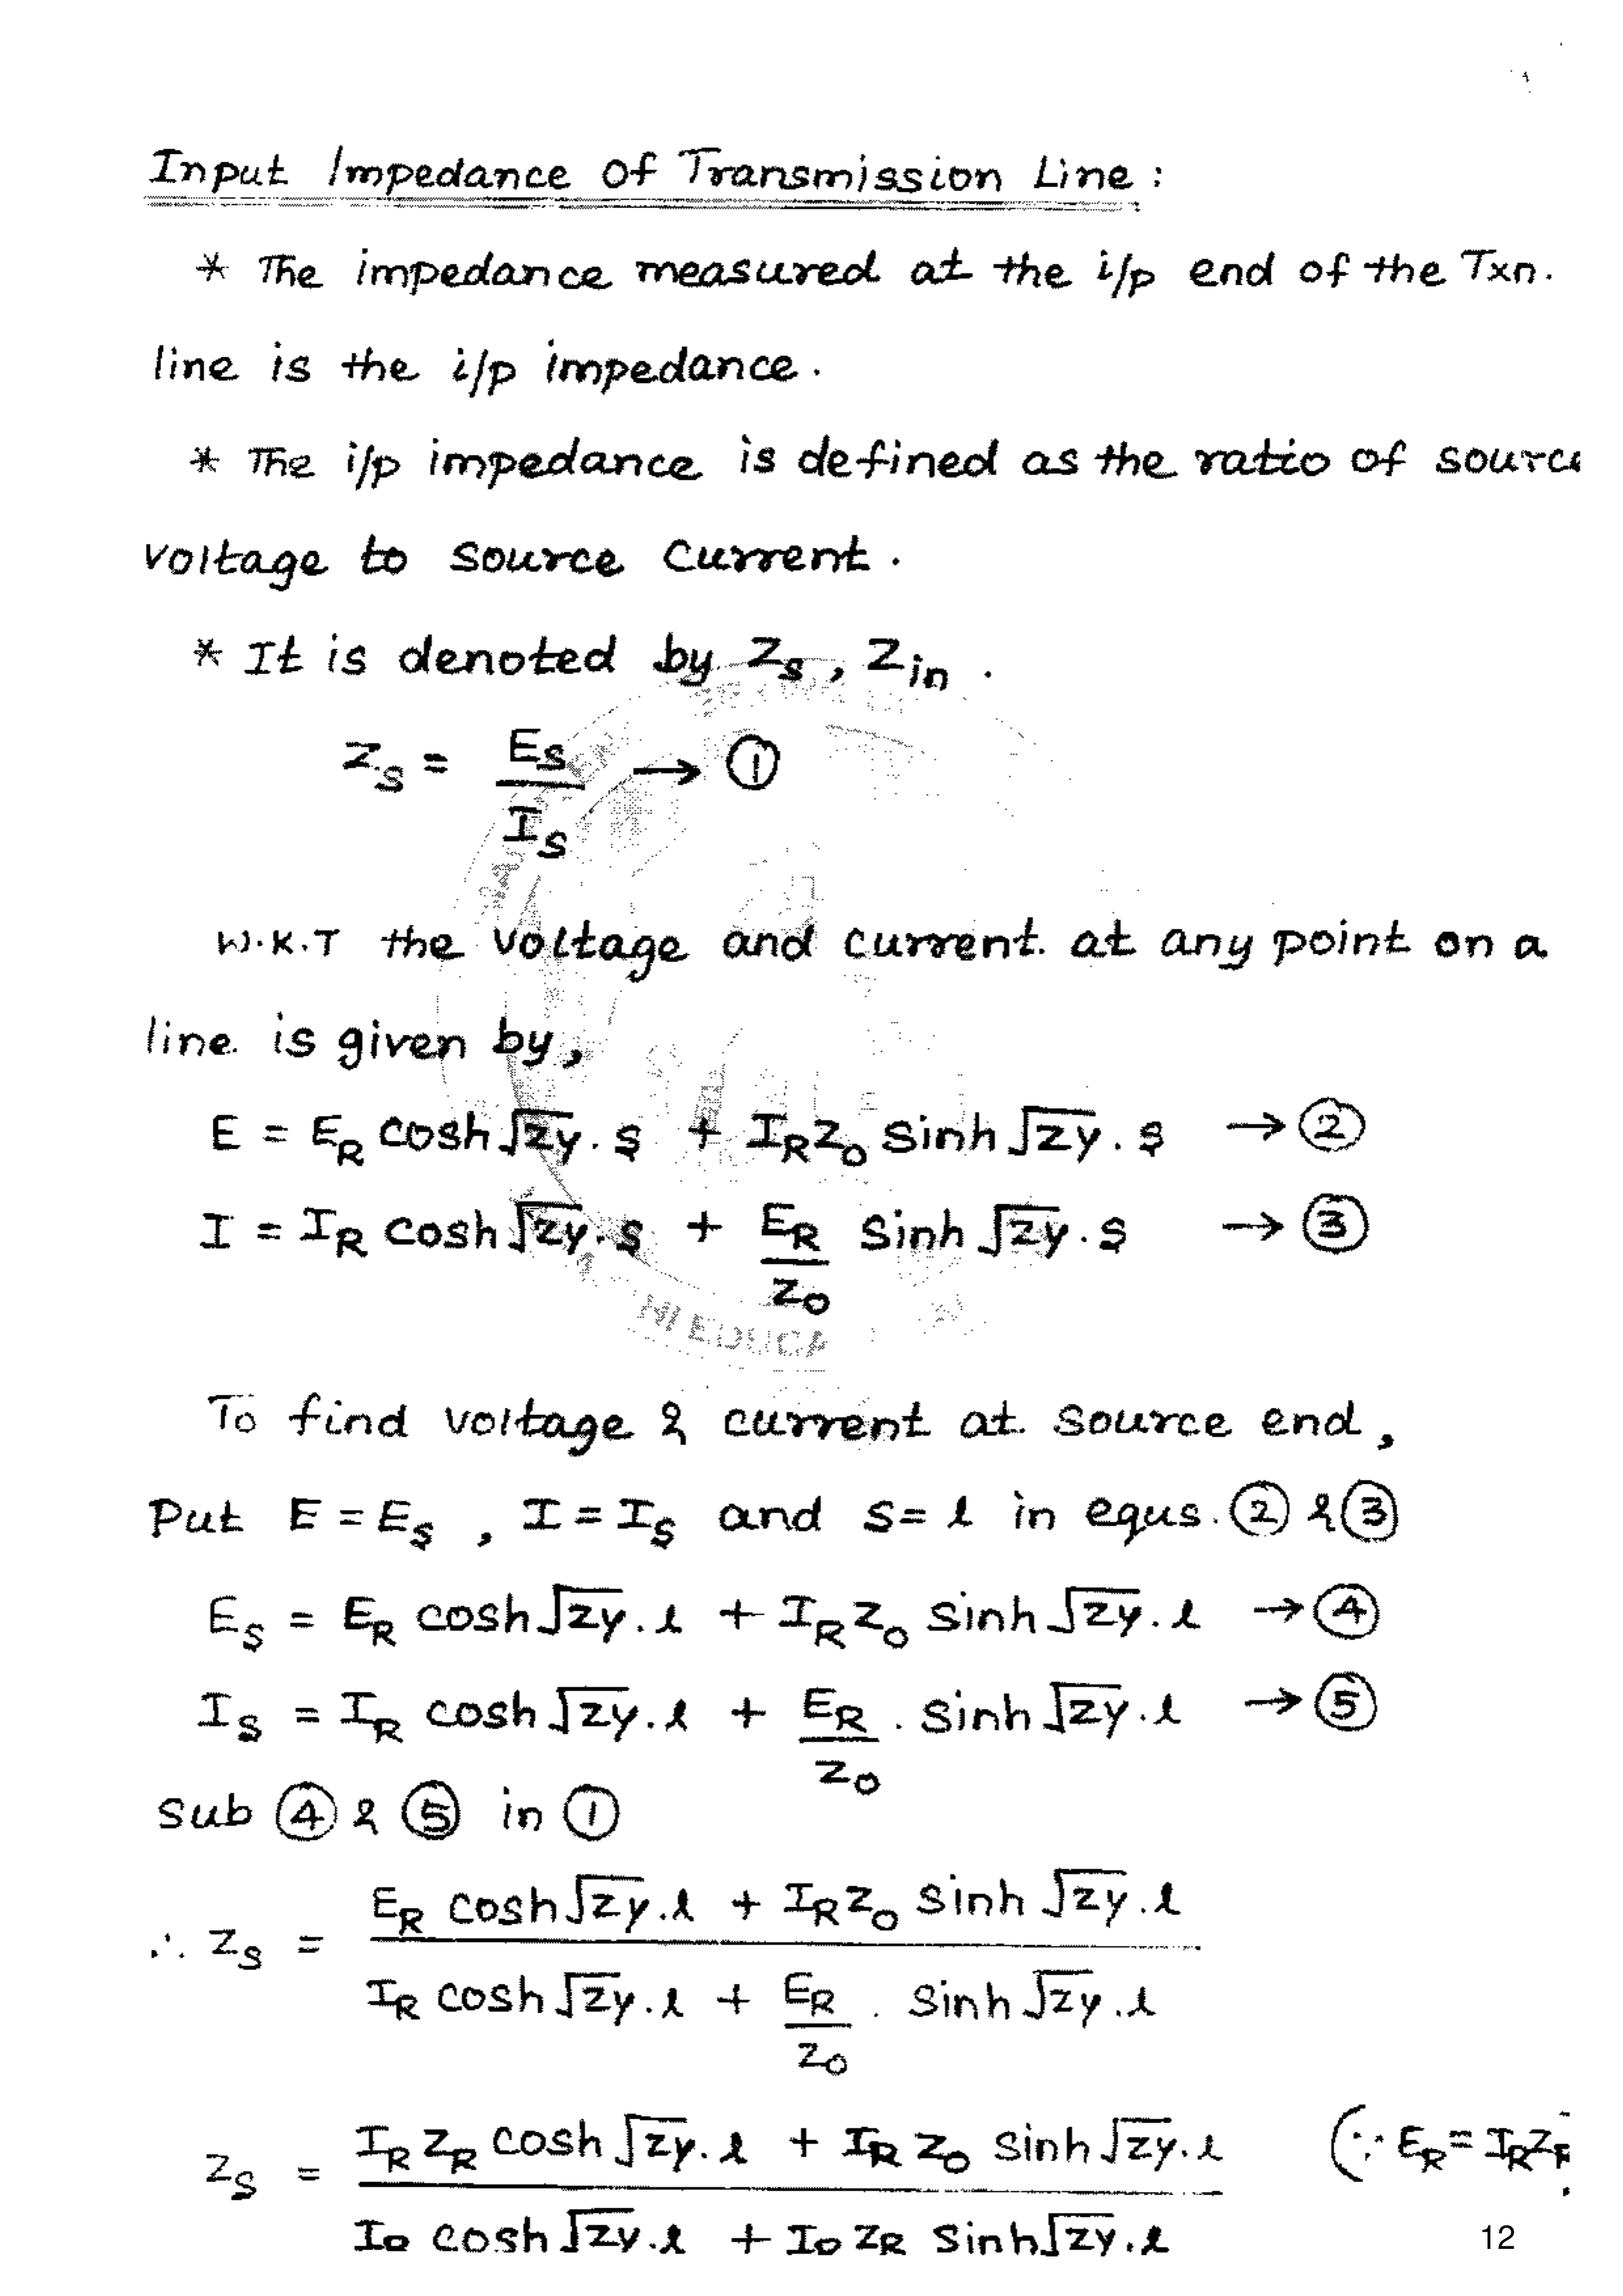 Input Impedance Of Transmission Line :
* The impedance measured at the i/p end of the Txn.
line is the i/p impedance.
* The i/p impedance is defined as the ratio of source
voltage to source current.
* It is denoted by Zs, Zin.
Zs = Es/Is → ①
W.K.T the voltage and current at any point on a
line is given by,
E = ER cosh √zy. s + IR Zo sinh √zy. s → ②
I = IR cosh √zy. s + ER/Zo sinh √zy. s → ③
EDUCA
To find voltage & current at source end,
Put E = Es, I = Is and s = l in equs. ② & ③
Es = ER cosh √zy. l + IR Zo sinh √zy. l → ④
Is = IR cosh √zy. l + ER/Zo . sinh √zy. l → ⑤
Sub ④ & ⑤ in ①
∴ Zs = (ER cosh √zy. l + IR Zo sinh √zy. l) / (IR cosh √zy. l + ER/Zo . sinh √zy. l)
Zs = (IR ZR cosh √zy. l + IR Zo sinh √zy. l) / (IR cosh √zy. l + IR ZR sinh √zy. l) (∵ ER = IR ZR
12